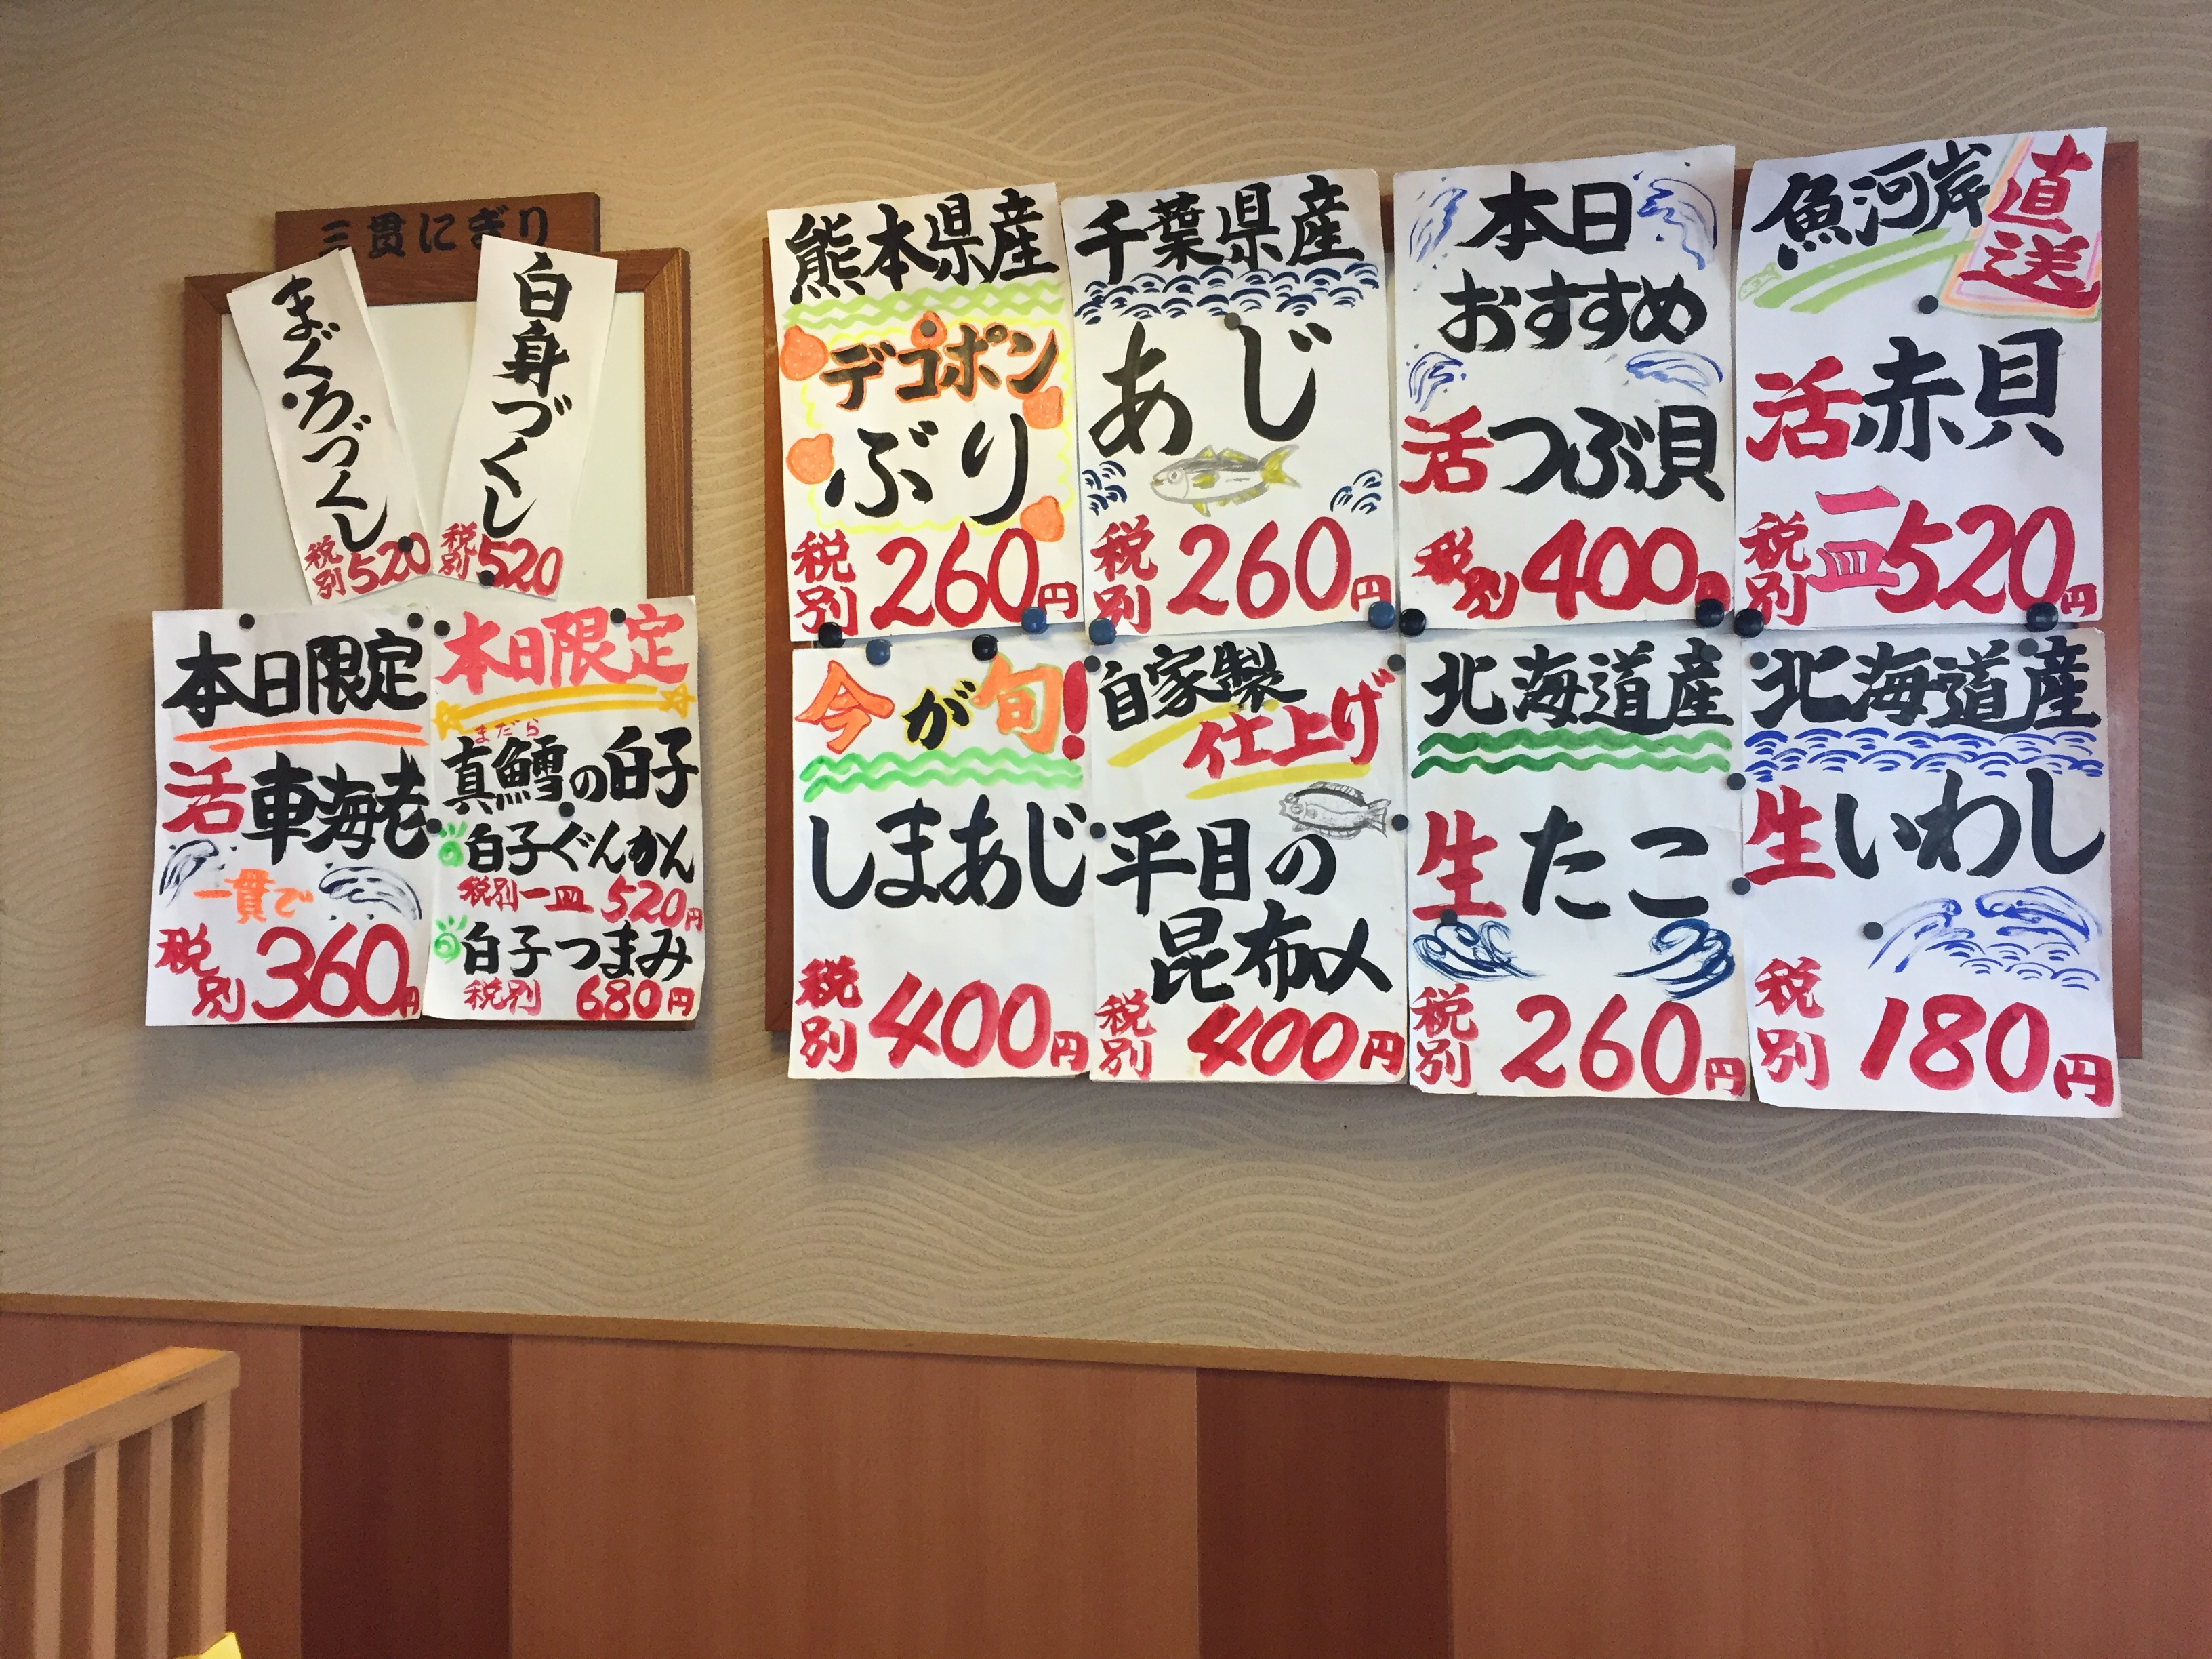 三貫にぎり
まぐろづくし
税別520
白身づくし
税別520
本日限定
活車海老
一貫で
税別360円
本日限定
まだら
真鱈の白子
白子ぐんかん
税別一皿520円
白子つまみ
税別680円
熊本県産
デコポン
ぶり
税別260円
千葉県産
あじ
税別260円
本日
おすすめ
活つぶ貝
税別400円
魚河岸直送
活赤貝
税別一皿520円
今が旬!
しまあじ
税別400円
自家製
仕上げ
平目の
昆布〆
税別400円
北海道産
生たこ
税別260円
北海道産
生いわし
税別180円